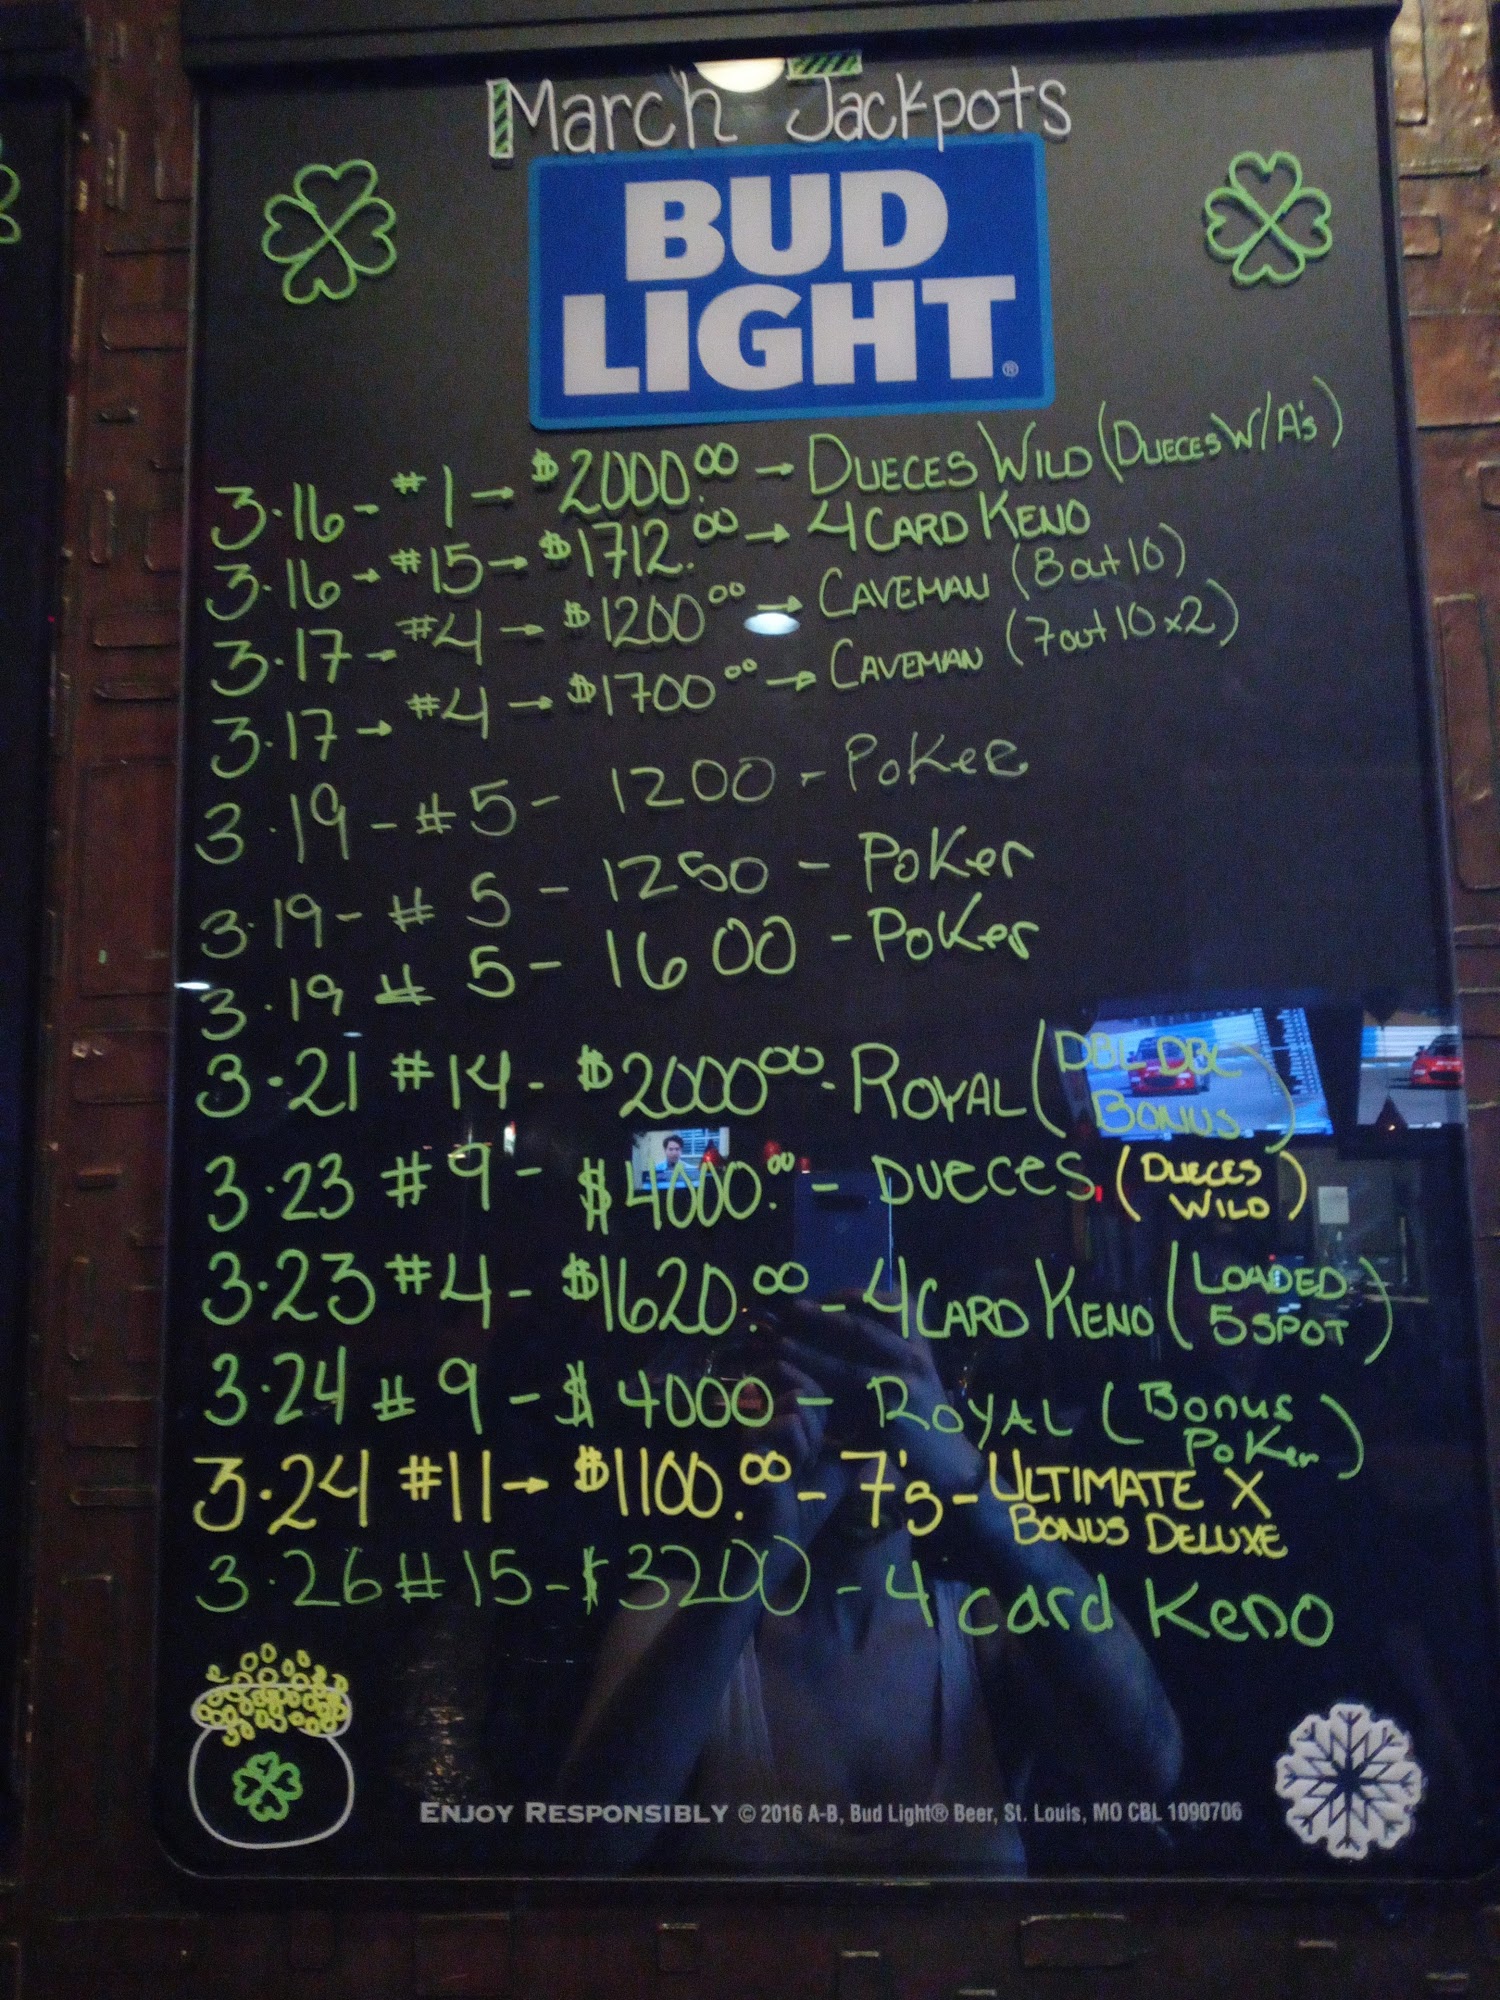 March Jackpots
BUD
LIGHT®
3·16 - #1 → $2000.00 → DUECES WILD (DUECES W/A's)
3·16 → #15 → $1712.00 → 4 CARD KENO
3·17 → #4 → $1200.00 → CAVEMAN (8 out 10)
3·17 → #4 → $1700.00 → CAVEMAN (7 out 10 x2)
3·19 - #5 - 1200 - Poker
3·19 - #5 - 1250 - Poker
3·19 #5 - 1600 - Poker
3·21 #14 - $2000.00 - ROYAL (DBL DBL
BONUS)
3·23 #9 - $4000.00 - DUECES (DUECES
WILD)
3·23 #4 - $1620.00 - 4 CARD KENO (LOADED
5 SPOT)
3·24 #9 - $4000 - ROYAL (Bonus
Poker)
3·24 #11 → $1100.00 - 7's - ULTIMATE X
BONUS DELUXE
3·26 #15 - $3200 - 4 card Keno
ENJOY RESPONSIBLY © 2016 A-B, Bud Light® Beer, St. Louis, MO CBL 1090706